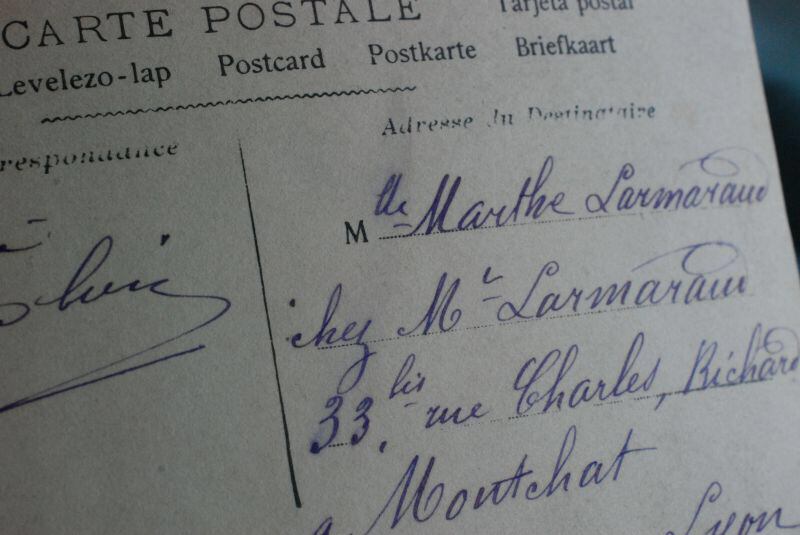 CARTE POSTALE
Tarjeta postal
Levelezo-lap Postcard Postkarte Briefkaart
respondance
Adresse du Destinataire
M lle Marthe Larmaraud
chez Mr Larmaraud
33 bis rue Charles, Richard
à Montchat
Lyon